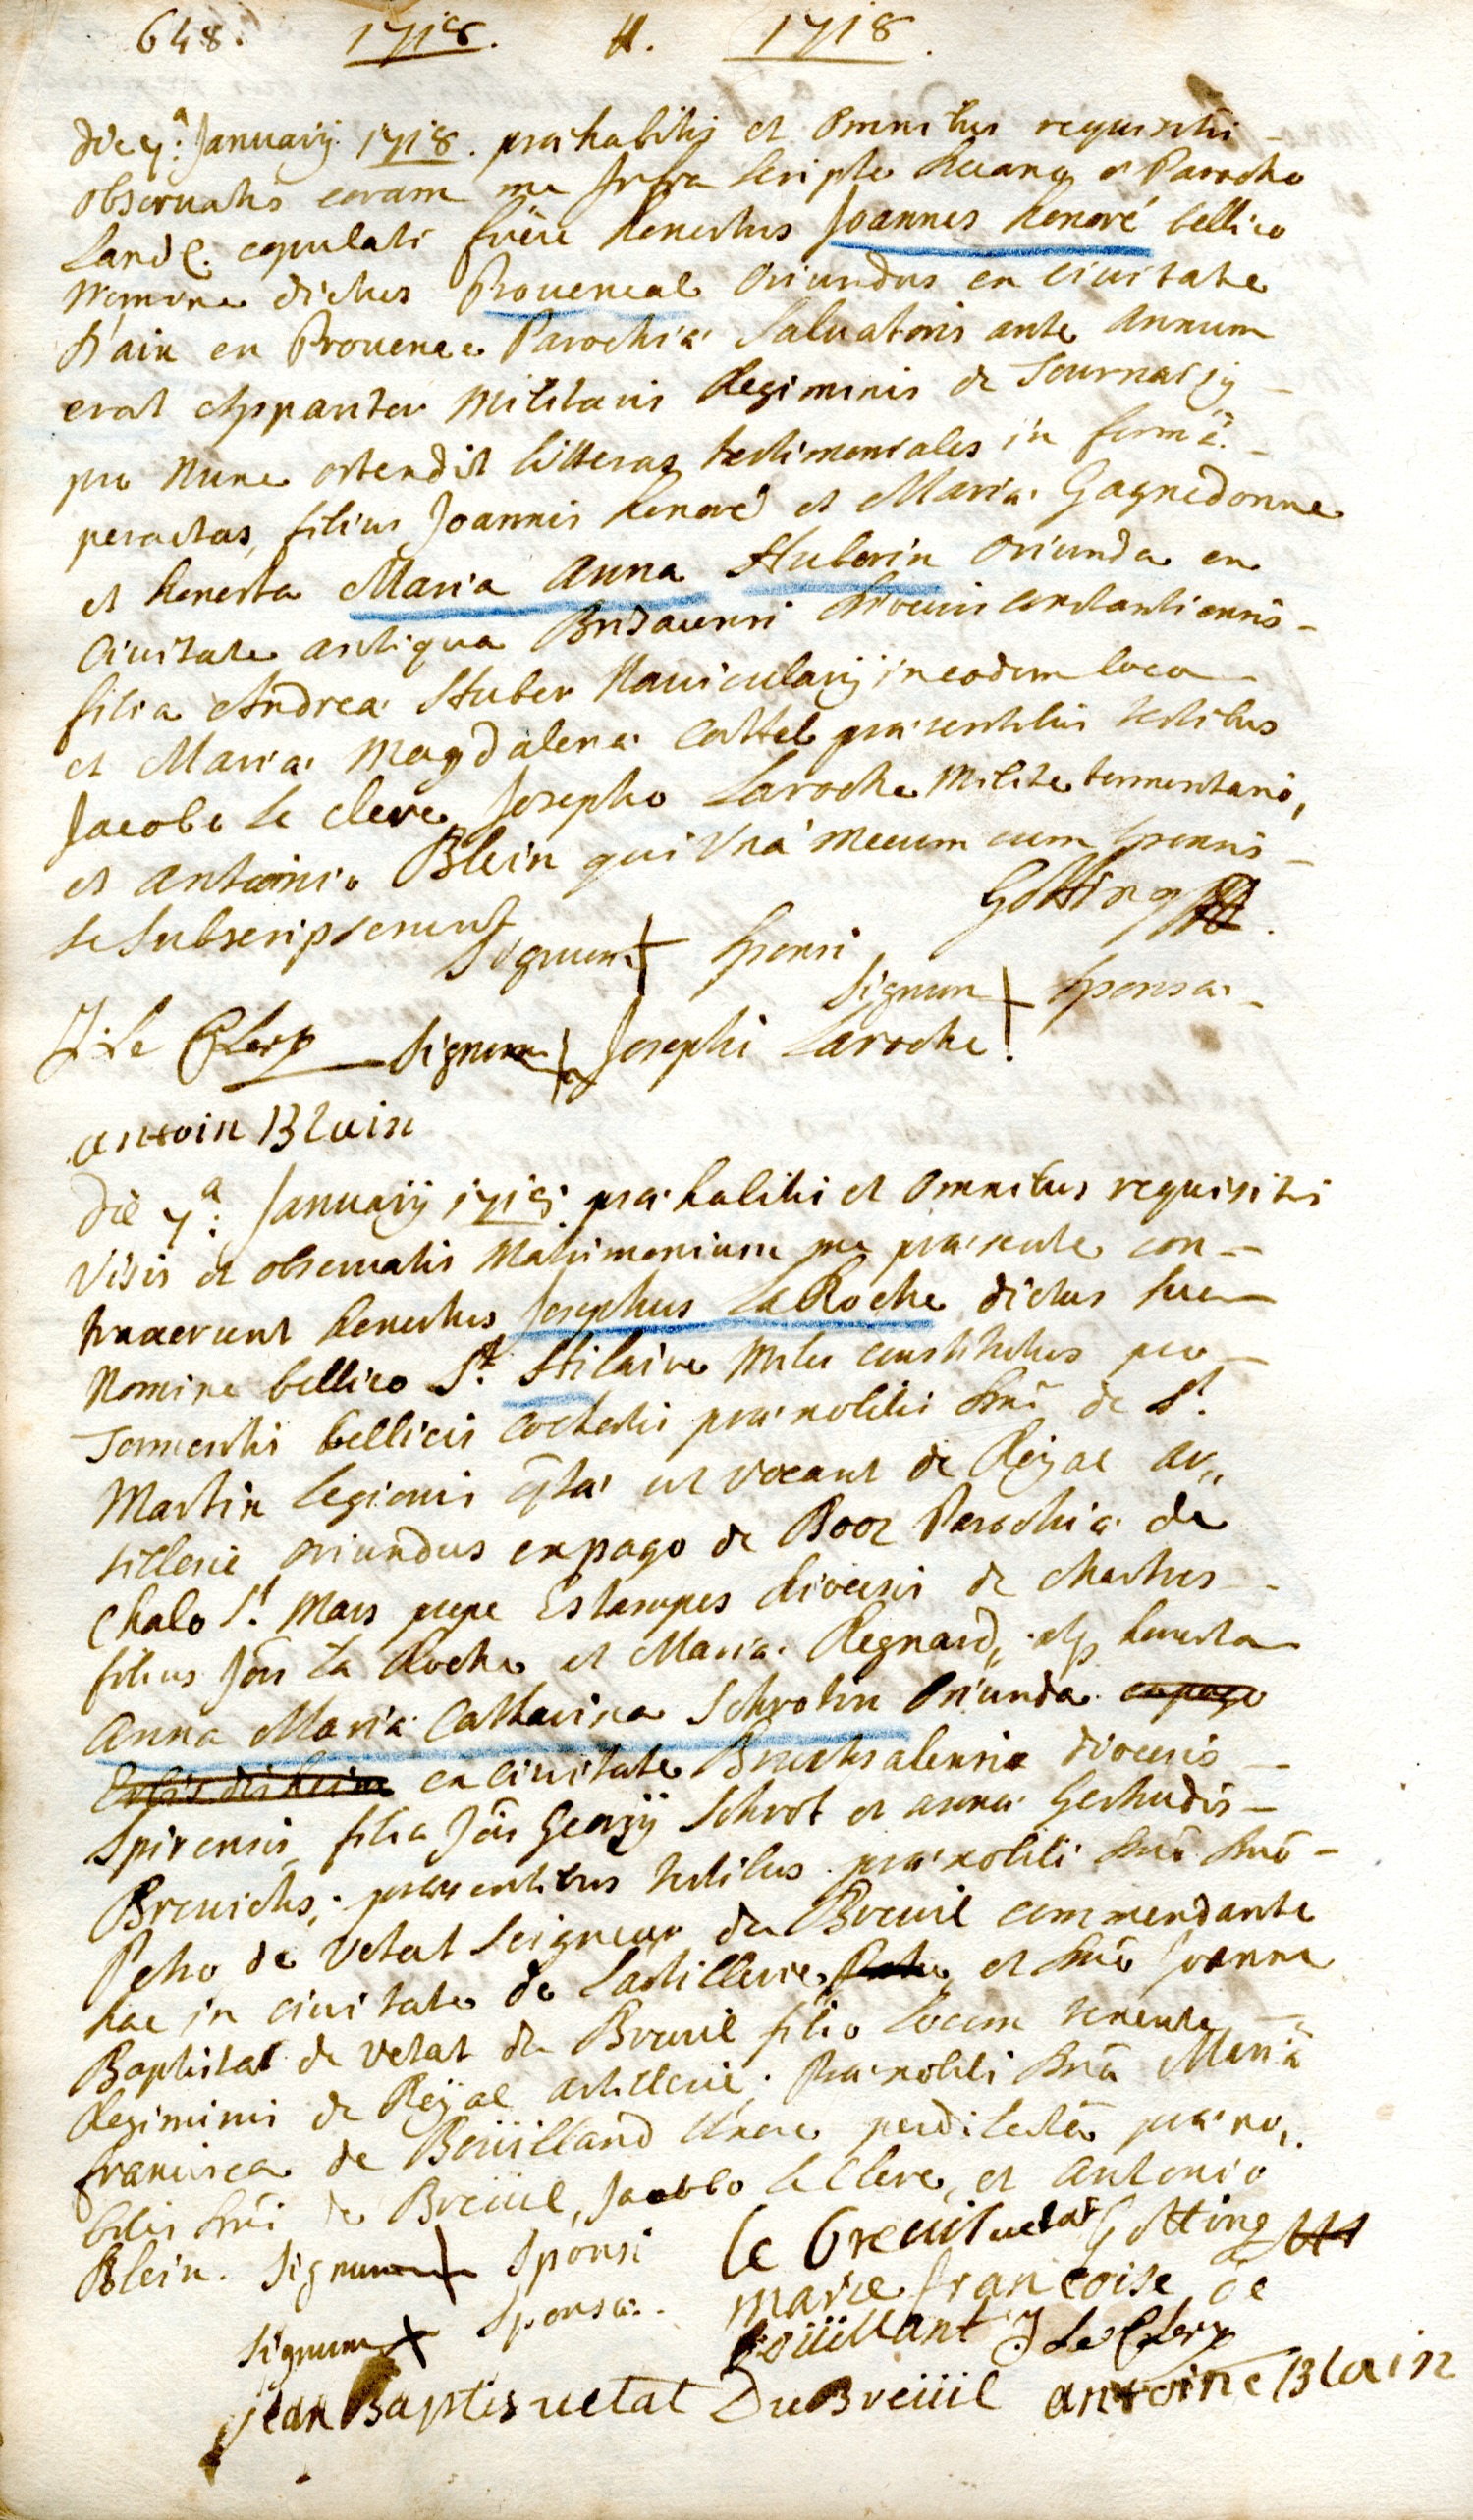 648. 1718. H. 1718.
Die 7.ª Januarij 1718. præhabitis et omnibus requisitis
observatis coram me Infra scripto Decano et Parocho
Land: copulati fuere honestus Joannes honoré bellico
Nomine dictus Provencal Oriundus ex Civitate
D'aix en Provence Parochiæ Salvatoris ante Annum
erat Appantor Militaris Regiminis de Tournasij
pro Nunc ostendit litteras testimoniales in formâ
peractas, filius Joannis honoré et Mariæ Gagnedonne
et honesta Maria Anna Huberin Oriunda ex
Civitate antiqua Brisacensi Diocesis Constantiensis
filia Andreæ Huber Navicularij in eodem loco
et Mariæ Magdalenæ Cattel præsentibus testibus
Jacobo Le Clerc, Josepho Laroche Milite tormentario,
et Antonio Blein qui Unà mecum cum sponsis
se Subscripserunt Gotting
Signum + Sponsi
Signum + Sponsæ
J: Le Clerc Signum + Josephi Laroche.
antoin Blain
Die 7.ª Januarij 1718. præhabitis et omnibus requisitis
Visis et observatis Matrimonium me præsente con-
traxerunt honestus Josephus La Roche dictus suo
Nomine bellico S.t Hilaire Miles constitutus pro
Tormentis bellicis Cohortis prænobilis Dni de S.t
Martin Legionis qta ut vocant de Roijal ar,,
tillerie oriundus ex pago de Booz Parochiæ de
Chalo S.t Mars prope Estampes diocesis de Chartres
filius Jois La Roche et Mariæ Regnard, atq honesta
Anna Maria Catharina Schrotin Oriunda ex pago
ex civitate Bruchsalensis diocesis
Spirensis, filia Jois Georgij Schrot et annæ Gertrudis
Breuichs, præsentibus testibus prænobili Dno Dno
Petro de Vetat Seigneur du Breuil commendante
hac in civitate de L'artillerie, et Dno Joanne
Baptista de Vetat du Breuil filio Locum tenente
Regiminis de Roijal artillerie, Prænobili Dnâ Mariâ
francisca de Boüilland Uxore perdilectâ præno,,
bilis Dni de Breüil, Jacobo Le Clerc, et Antonio
Blein. Signum + Sponsi Le breuil vetat Gotting
Signum + Sponsæ. marie francoise de
boüillant J Le Clerc
jean Baptis vetat Du Breüil antoine Blain